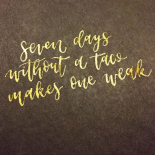 Seven days
without a taco
makes one weak